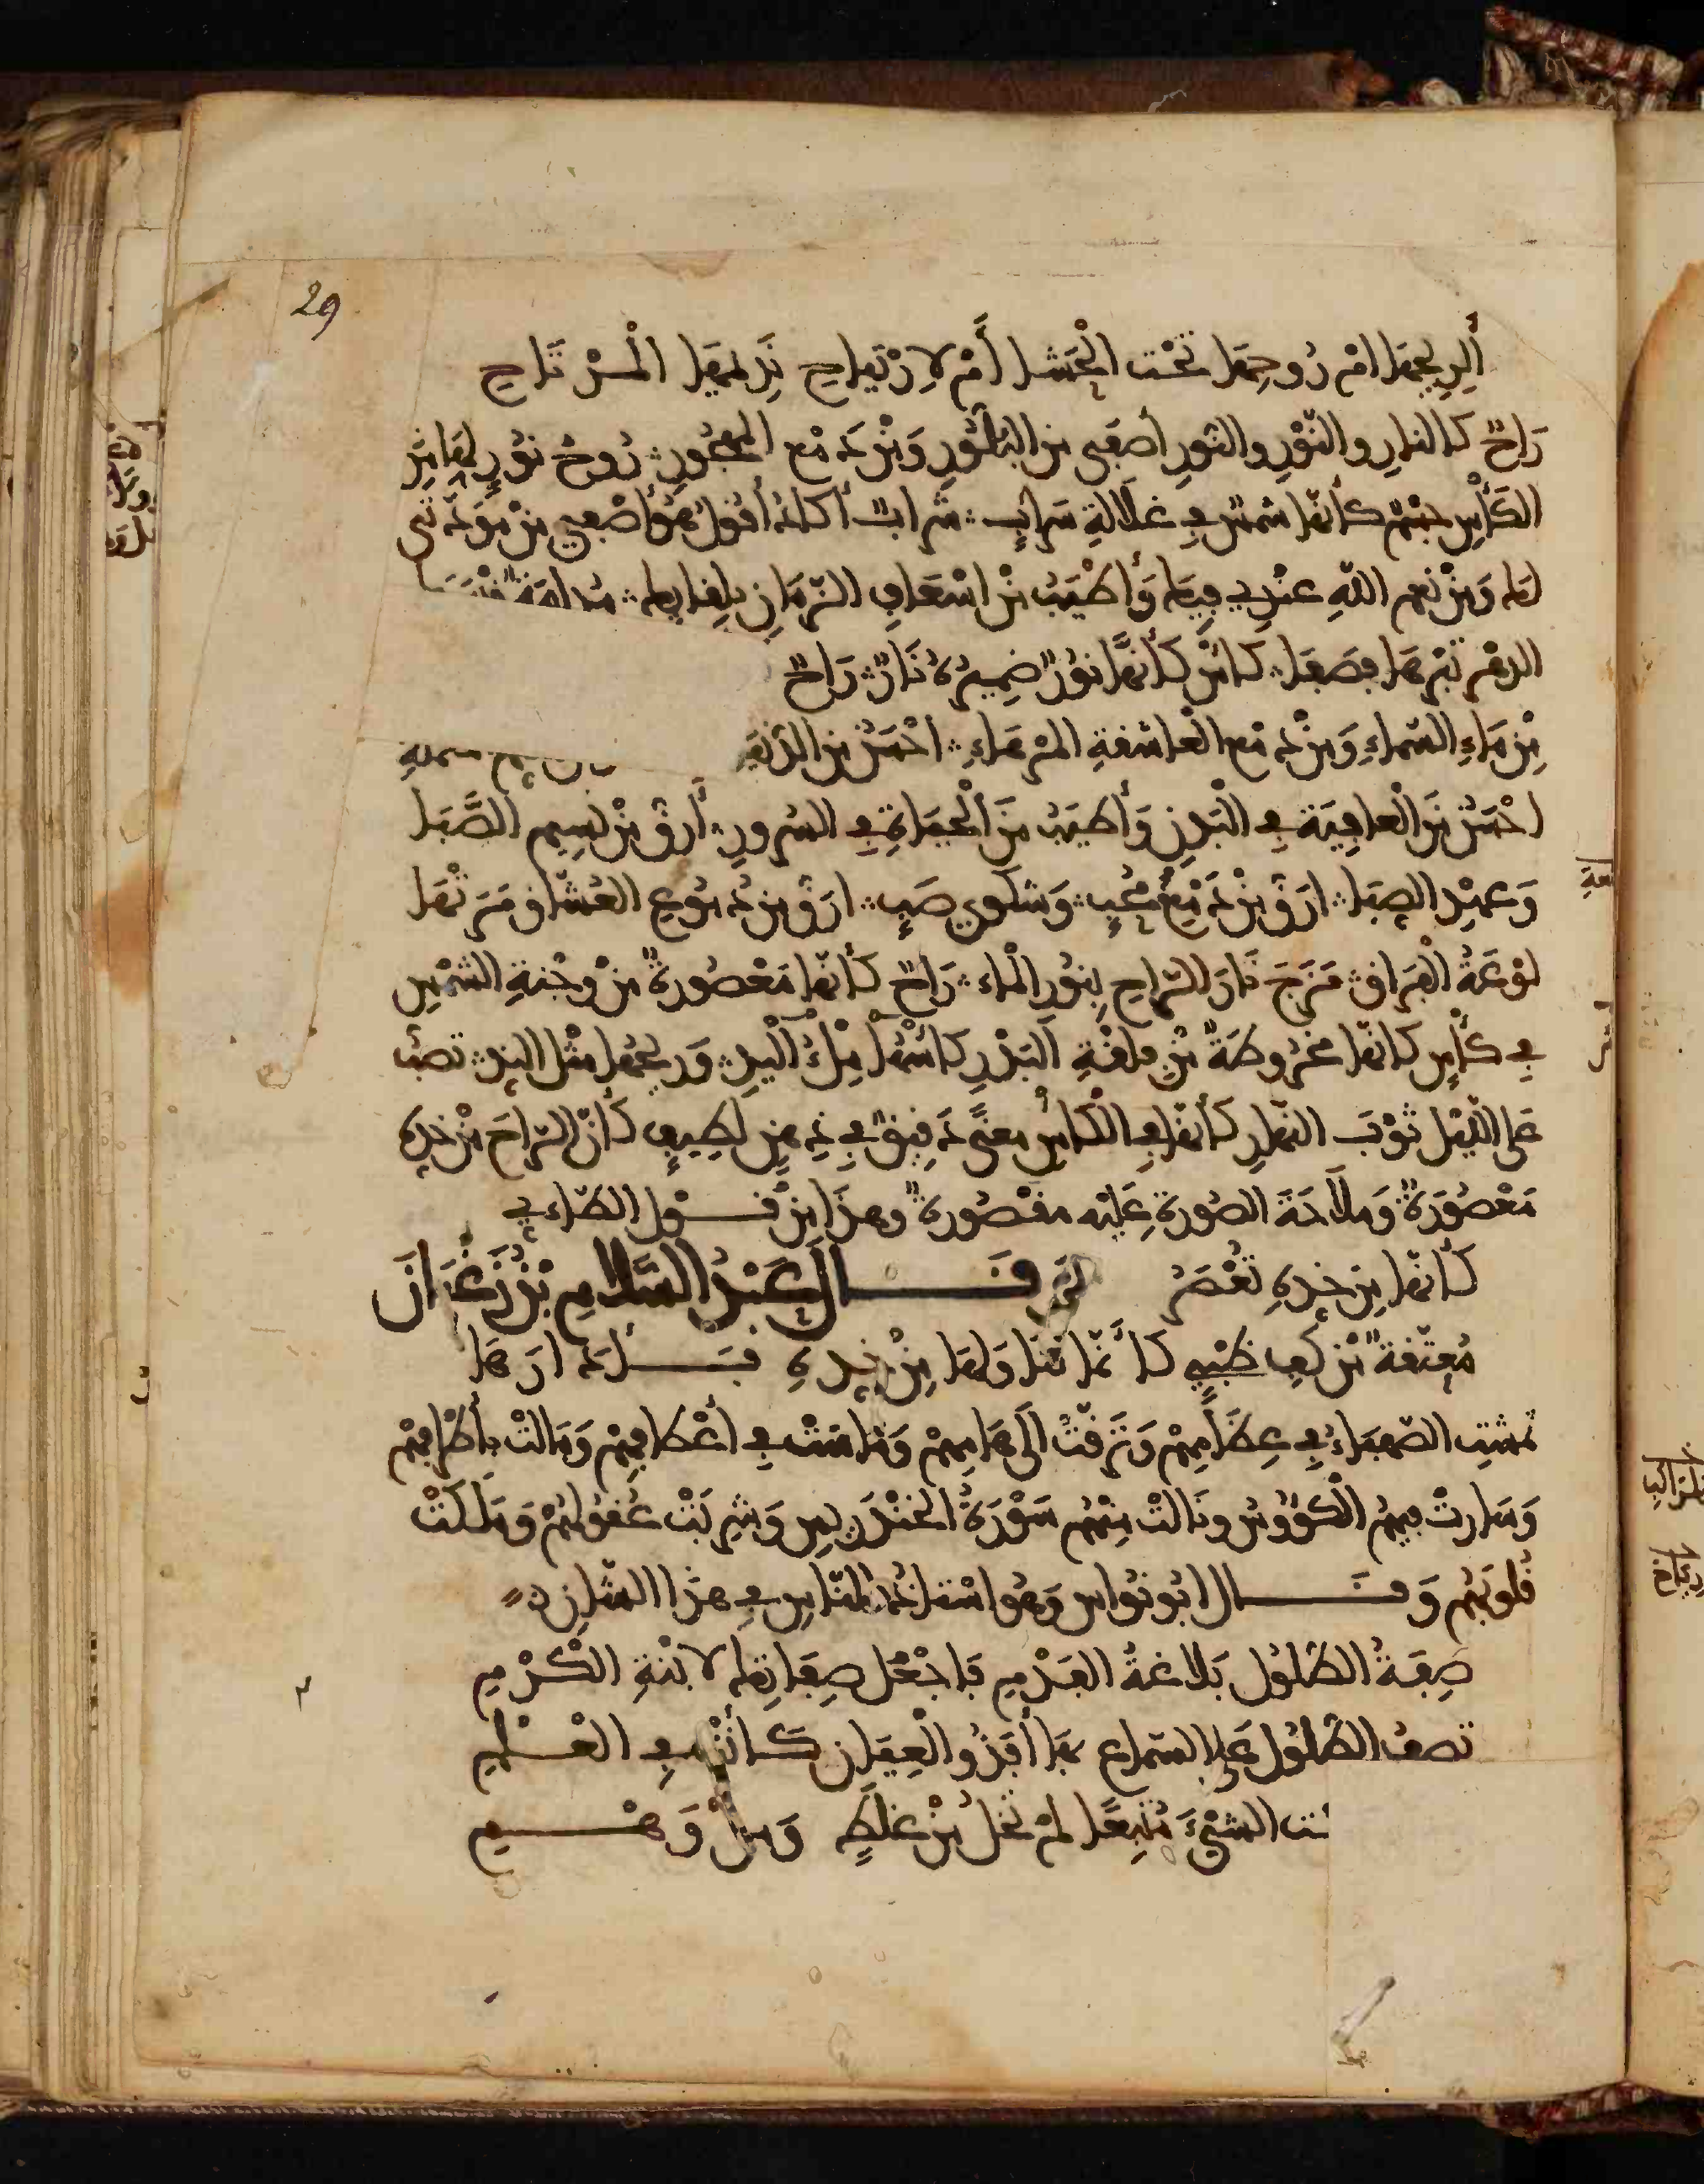 29
أَلِرِيحِهَا امْ رُوحِهَا تَحْتَ الْحَشَا أَمْ لِارْتِيَاحِ نَدِيمِهَا الْمُرْتَاحِ
رَاحٌ كالنارِ والنَّوْرِ والنورِ أصفى من البَلُّورِ وَمِنْ دَمْعِ المهجُورِ رُوحُ نُورٍ لَهَا مِنَ
الكَأْسِ جِسْمٌ كأنها شمسٌ في غلالةِ سرابٍ شرابٌ أكادُ أقولُ هُوَ أصْفى مِنْ مَوَدَّتى
لها وَمِنْ نِعَمِ اللهِ عندِي فيها وَأطْيَبُ مِنْ اسْعَافِ الزمانِ بلِقَائِها مُدَامَة
الدهْر تبرها فصفا كأسٌ كأنَّها نُورٌ ضميرُهُ نَارٌ رَاحٌ
مِنْ مَاءِ السَّماءِ وَمِنْ دَمْعِ العاشقةِ المرْهاءِ احْسَنُ من الدنيا
احْسَنُ مَنَ الْعَافِيَةِ في الْبَدَنِ وَأطيَبُ مِنَ الْحَيَاةِ في السُرورِ أرقُّ مِنْ نَسِيمِ الصَّبَا
وَعَهْدِ الصِبَا ارَقُّ مِنْ دَمْعِ مُحِبٍ وَشكوى صَبٍ ارَقُّ مِنْ دُمُوعِ العُشَّاقِ مَرَتْهَا
لَوْعَةُ الْفِرَاقِ مَزَجَ نَارَ الرَّاحِ بِنُورِ الْمَاءِ رَاحٌ كأنها مَعْصُورةٌ مِنْ وَجْنةِ الشمْسِ
في كأسٍ كأنها مخرُوطَةٌ مِن فِلقةِ البَدْرِ كأسُهَا مِلْءُ الْيَدِ وَرِيحُهَا مِلْءُ البَلَدِ تصُبُ
على الليْل ثوْبَ النهارِ كأنها في الكأسِ معنًى دَقِيقٌ في ذِهْنٍ لَطِيفٍ كأنَّ الرَّاحَ مِنْ خدِهِ
مَعْصُورَةٌ وَمَلَاحَةَ الصُورةِ عليْه مقصُورةٌ وهذَا مِنْ قَوْلِ الطاءى
كأنها مِن خدِهِ تُعْصَرُ وَقَالَ عَبْدُ السَّلامِ بْنُ رَغْبَانَ
مُعتّقةٌ مْن كفِ ظَبْيٍ كَأَنَّمَا تَنَاوَلَهَا مِنْ خَدِهِ فَأَدَارَهَا
تمشتِ الصَّهْبَاءُ في عِظَامِهِمْ وَتَرَقَّتْ الَى هَامِهِمْ وَمَاسَتْ في أعْطَافِهِمْ وَمَالَتْ بأطْرَافِهِمْ
وَسَارتْ فِيهِمُ الكُؤوسُ ونَالتْ مِنْهُم سَوْرَةُ الخَنْدَرِيسِ وَشرِبَتْ عُقُولَهُمْ وَمَلَكَتْ
قُلُوبَهُم وَقَال ابُو نُوَاسٍ وَهُوَ اسْتَاذُ النَّاسِ في هَذَا الشَّانِ
صِفَةُ الطلُولِ بَلاغةُ الفَدْمِ فَاجْعَلْ صِفَاتِها لابْنةِ الكرْمِ
تصفُ الطلُولَ عَلى السَّمَاعِ بِهَا أفَذُو الْعِيَانِ كَأنْتَ فِي العْلمِ
ـت الشيْءَ مُتَّبِعًا لمْ تَخلُ مِنْ غَلَطٍ وَمِنْ وَهْمِ